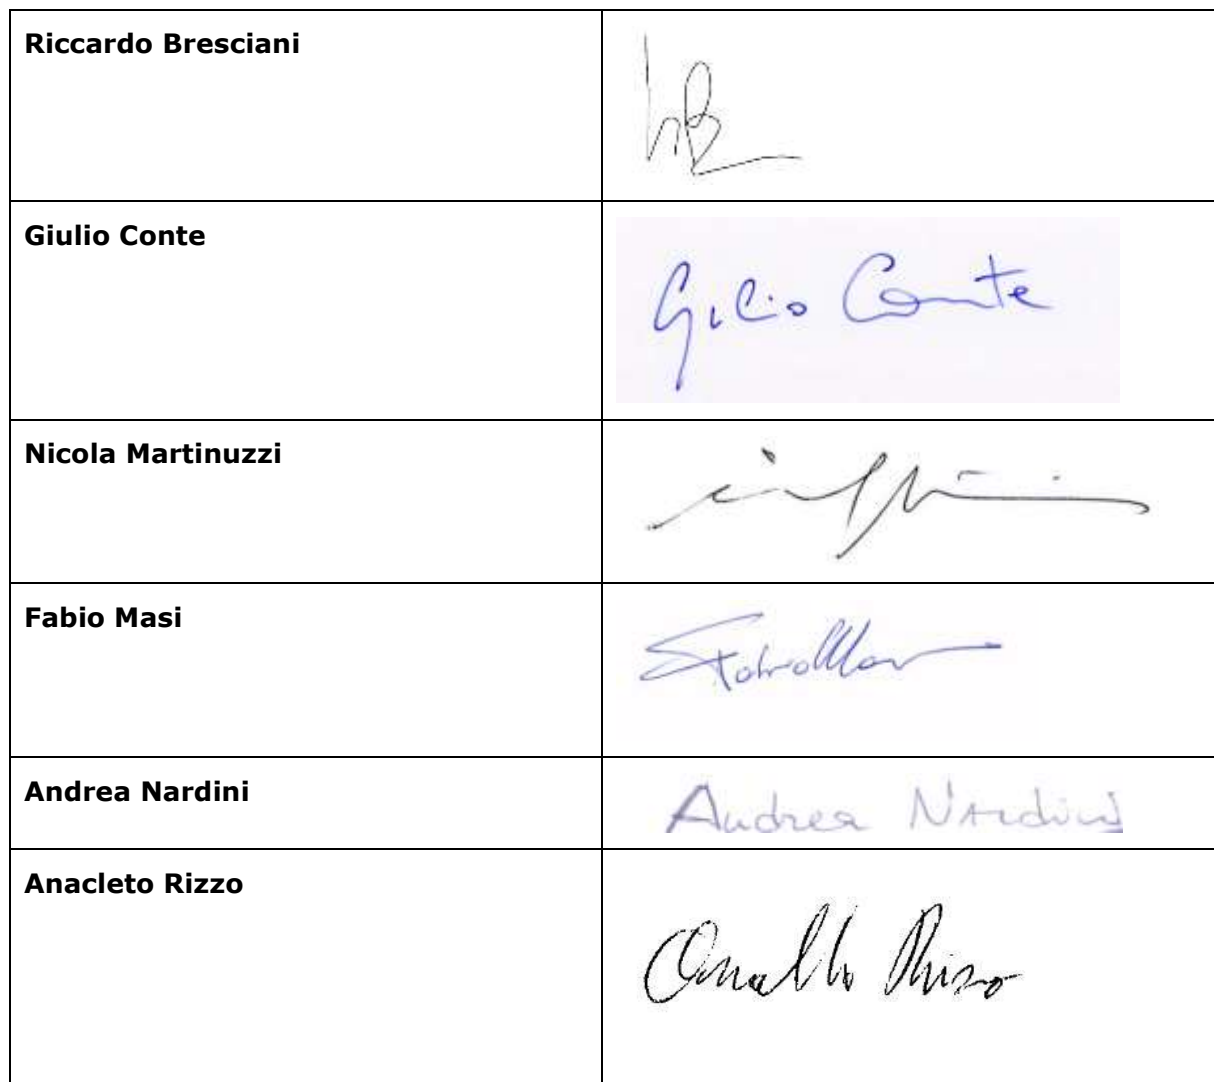 Riccardo Bresciani
Giulio Conte
Giulio Conte
Nicola Martinuzzi
Fabio Masi
Andrea Nardini
Andrea Nardini
Anacleto Rizzo